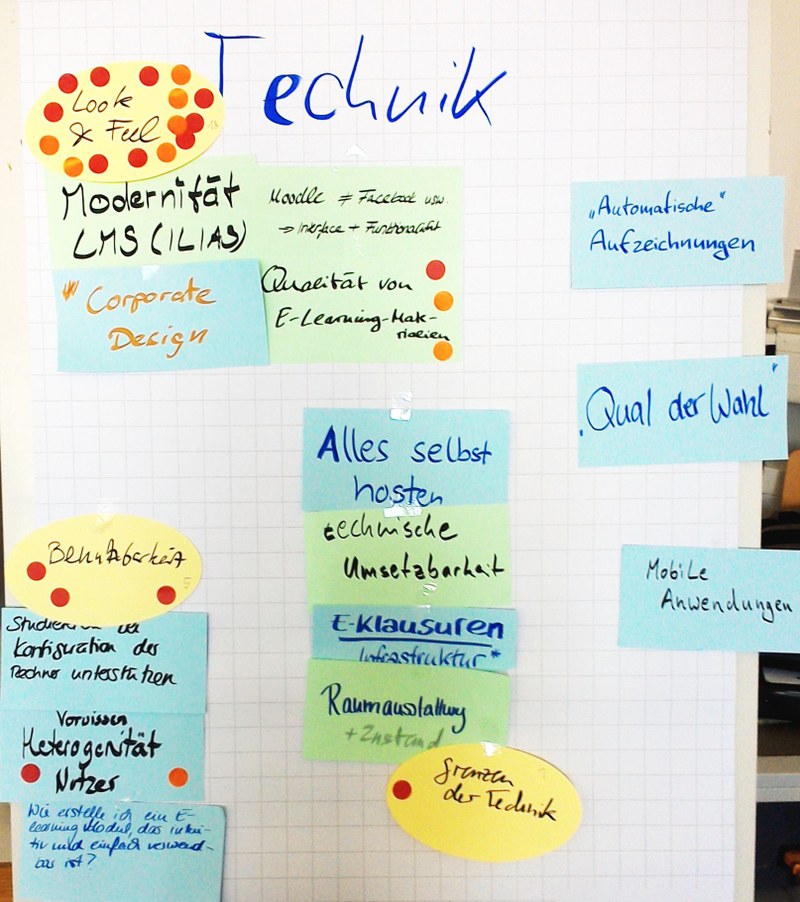 Technik
Look
& Feel
Modernität
LMS (ILIAS)
Corporate
Design
Moodle ≠ Facebook usw.
→ Interface + Funktionalität
Qualität von
E-Learning-Mate-
rialien
"Automatische"
Aufzeichnungen
"Qual der Wahl"
Alles selbst
hosten
technische
Umsetzbarkeit
E-Klausuren
Infrastruktur*
Raumausstattung
+ Zustand
Grenzen
der Technik
Mobile
Anwendungen
Benutzbarkeit
5
Studierende bei
Konfiguration der
Rechner unterstützen
Vorwissen
Heterogenität
Nutzer
Wie erstelle ich ein E-
learning Modul, das intui-
tiv und einfach verwend-
bar ist?